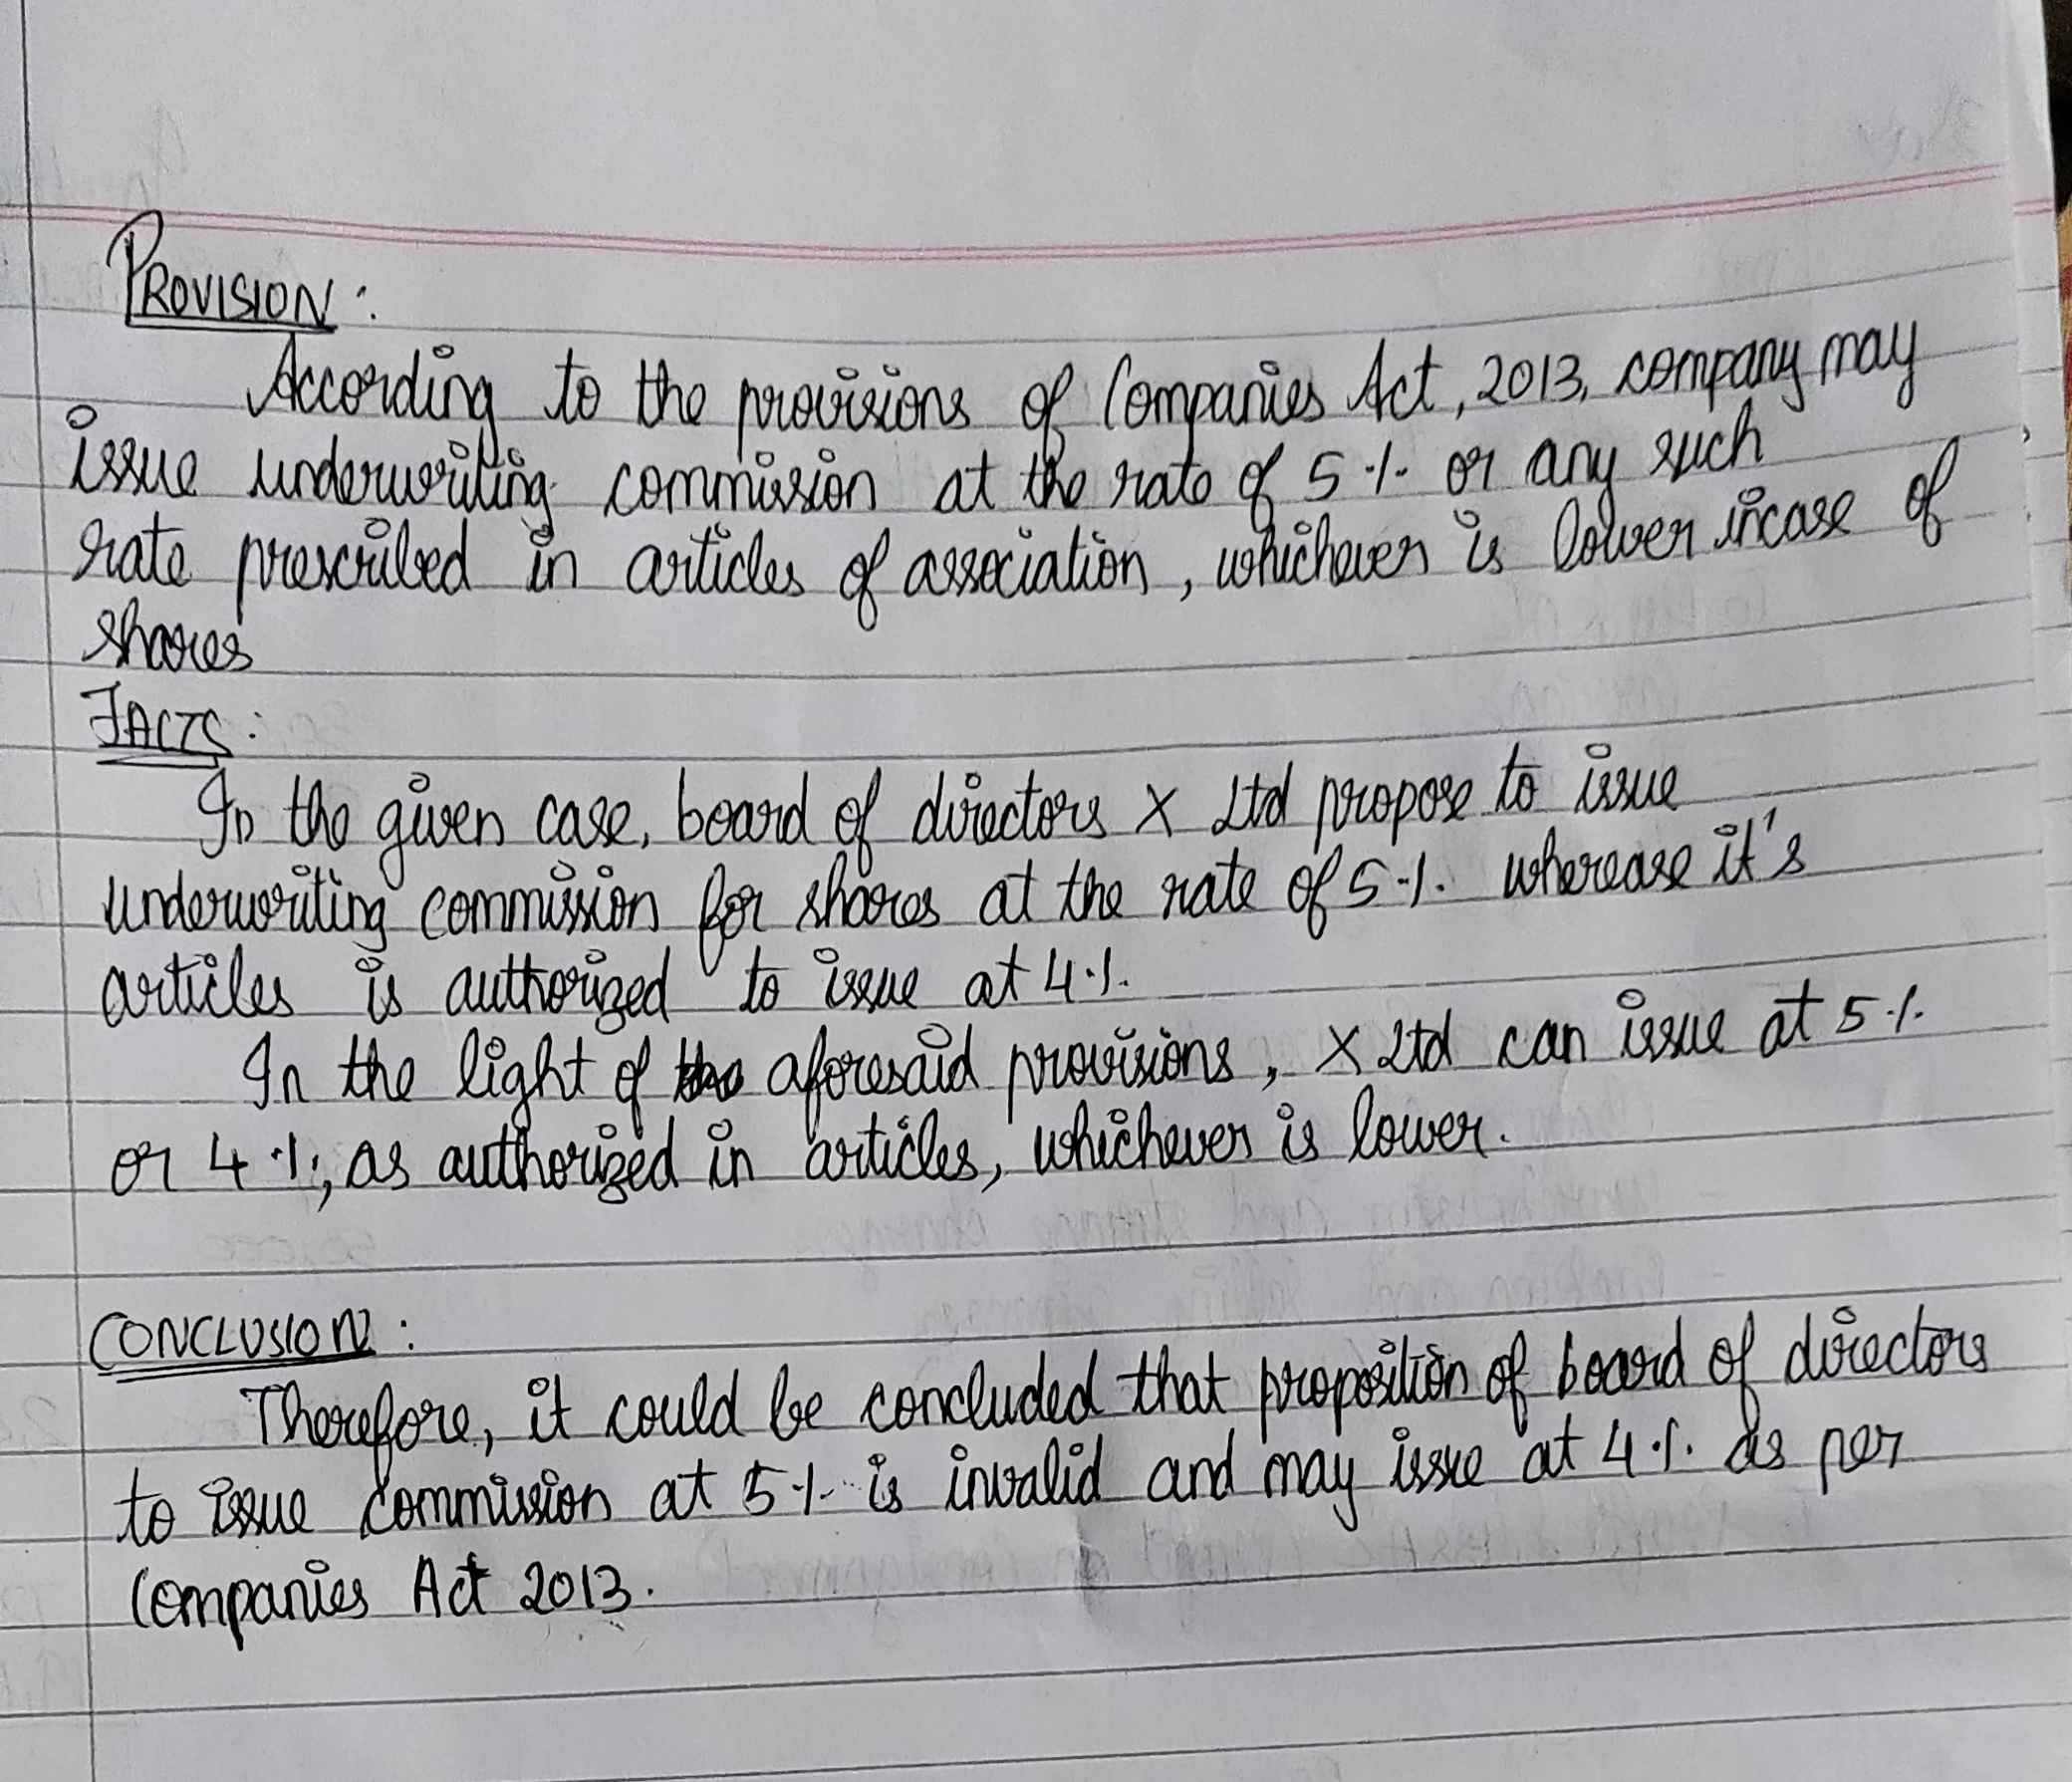 PROVISION:
According to the provisions of Companies Act, 2013, company may
issue underwriting commission at the rate of 5% or any such
rate prescribed in articles of association, whichever is lower incase of
shares
FACTS:
In the given case, board of directors X Ltd propose to issue
underwriting commission for shares at the rate of 5%. wherease it's
articles is authorized to issue at 4%.
In the light of the aforesaid provisions, X Ltd can issue at 5%
or 4%, as authorized in articles, whichever is lower.
CONCLUSION:
Therefore, it could be concluded that proposition of board of directors
to issue commission at 5% is invalid and may issue at 4%. as per
Companies Act 2013.